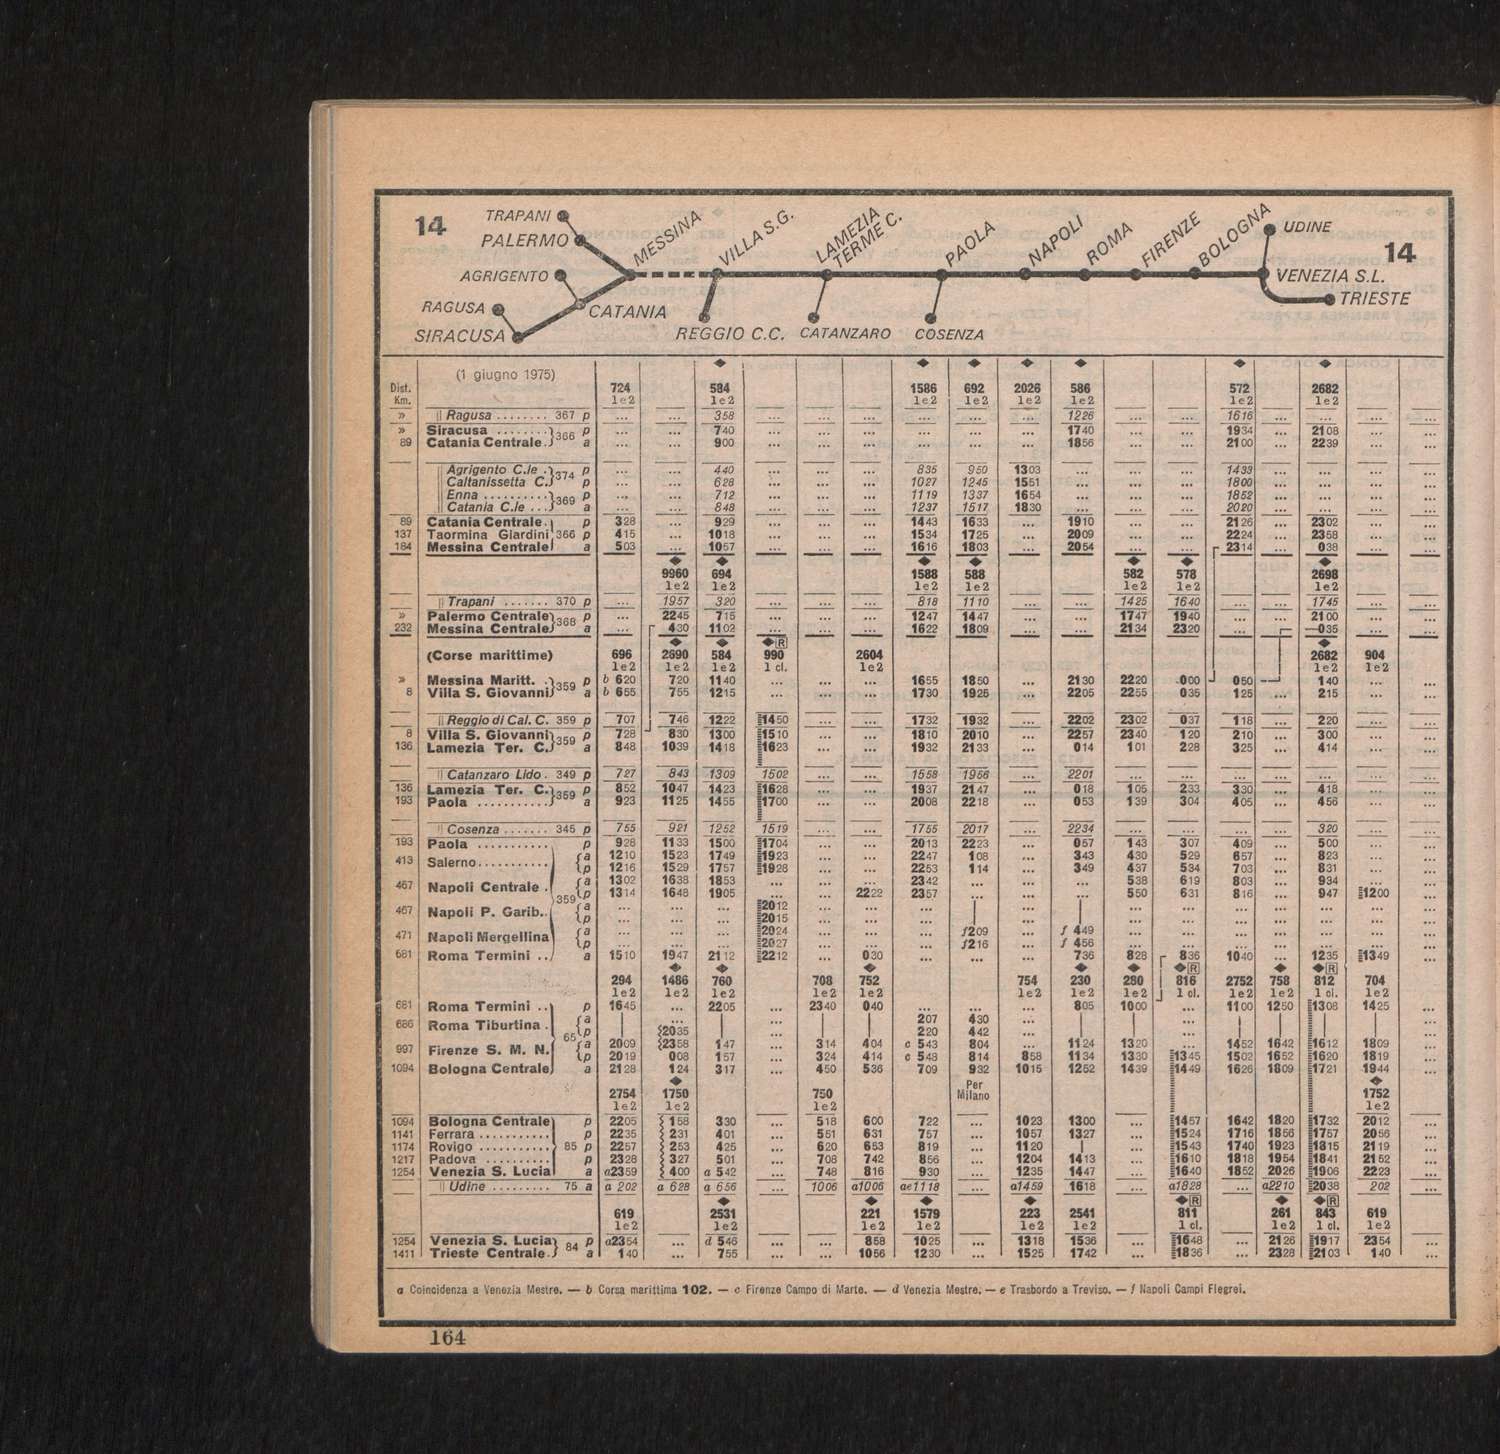 14
TRAPANI
PALERMO
AGRIGENTO
RAGUSA
SIRACUSA
MESSINA
CATANIA
VILLA S.G.
REGGIO C.C.
LAMEZIA TERME C.
CATANZARO
PAOLA
COSENZA
NAPOLI
ROMA
FIRENZE
BOLOGNA
UDINE
VENEZIA S.L.
TRIESTE
14
(1 giugno 1975)
Dist. 724 584 1586 692 2026 586 572 2682
Km. 1e2 1e2 1e2 1e2 1e2 1e2 1e2 1e2
» Ragusa ........ 367 p ... ... 358 ... ... ... ... ... ... 1226 ... ... 1616 ... ... ... ...
» Siracusa ........ 366 p ... ... 740 ... ... ... ... ... ... 1740 ... ... 1934 ... 2108 ... ...
89 Catania Centrale . a ... ... 900 ... ... ... ... ... ... 1856 ... ... 2100 ... 2239 ... ...
Agrigento C.le . 374 p ... ... 440 ... ... ... 835 950 1303 ... ... ... 1433 ... ... ... ...
Caltanissetta C. p ... ... 628 ... ... ... 1027 1245 1551 ... ... ... 1800 ... ... ... ...
Enna .......... 369 p ... ... 712 ... ... ... 1119 1337 1654 ... ... ... 1852 ... ... ... ...
Catania C.le ... a ... ... 848 ... ... ... 1237 1517 1830 ... ... ... 2020 ... ... ... ...
89 Catania Centrale . p 328 ... 929 ... ... ... 1443 1633 ... 1910 ... ... 2126 ... 2302 ... ...
137 Taormina Giardini 366 p 415 ... 1018 ... ... ... 1534 1725 ... 2009 ... ... 2224 ... 2358 ... ...
184 Messina Centrale a 503 ... 1057 ... ... ... 1616 1803 ... 2054 ... ... 2314 ... 038 ... ...
9960 694 1588 588 582 578 2698
1e2 1e2 1e2 1e2 1e2 1e2 1e2
Trapani ....... 370 p ... 1957 320 ... ... ... 818 1110 ... ... 1425 1640 ... ... 1745 ... ...
» Palermo Centrale 368 p ... 2245 715 ... ... ... 1247 1447 ... ... 1747 1940 ... ... 2100 ... ...
232 Messina Centrale a ... 430 1102 ... ... ... 1622 1809 ... ... 2134 2320 ... 035 ... ...
R
(Corse marittime) 696 2690 584 990 2604 2682 904
1e2 1e2 1e2 1 cl. 1e2 1e2 1e2
» Messina Maritt. . 359 p b 620 720 1140 ... ... ... 1655 1850 ... 2130 2220 000 050 140 ... ...
8 Villa S. Giovanni a b 655 755 1215 ... ... ... 1730 1925 ... 2205 2255 035 125 ... 215 ... ...
Reggio di Cal. C. 359 p 707 746 1222 1450 ... ... 1732 1932 ... 2202 2302 037 118 ... 220 ... ...
8 Villa S. Giovanni 359 p 728 830 1300 1510 ... ... 1810 2010 ... 2257 2340 120 210 ... 300 ... ...
136 Lamezia Ter. C. a 848 1039 1418 1623 ... ... 1932 2133 ... 014 101 228 325 ... 414 ... ...
Catanzaro Lido . 349 p 727 843 1309 1502 ... ... 1558 1956 ... 2201 ... ... ... ... ... ... ...
136 Lamezia Ter. C. 359 p 852 1047 1423 1628 ... ... 1937 2147 ... 018 105 233 330 ... 418 ... ...
193 Paola ........... a 923 1125 1455 1700 ... ... 2008 2218 ... 053 139 304 405 ... 456 ... ...
Cosenza ....... 345 p 755 921 1252 1519 ... ... 1755 2017 ... 2234 ... ... ... ... 320 ... ...
193 Paola ........... p 928 1133 1500 1704 ... ... 2013 2223 ... 057 143 307 409 ... 500 ... ...
413 Salerno........... a 1210 1523 1749 1923 ... ... 2247 108 ... 343 430 529 657 ... 823 ... ...
p 1216 1529 1757 1928 ... ... 2253 114 ... 349 437 534 703 ... 831 ... ...
467 Napoli Centrale . a 1302 1638 1853 ... ... 2342 ... ... ... 538 619 803 ... 934 ... ...
359 p 1314 1648 1905 2222 2357 ... ... ... 550 631 816 ... 947 1200 ...
467 Napoli P. Garib.. a ... ... ... 2012 ... ... ... ... ... ... ... ... ... ... ...
p ... ... ... 2015 ... ... ... ... ... ... ... ... ... ... ...
471 Napoli Mergellina a ... ... ... 2024 ... ... ... f209 ... f 449 ... ... ... ... ... ... ...
p ... ... ... 2027 ... ... ... f216 ... f 456 ... ... ... ... ... ... ...
681 Roma Termini .. a 1510 1947 2112 2212 ... 030 ... ... ... 736 828 836 1040 ... 1235 1349 ...
R R
294 1486 760 708 752 754 230 280 816 2752 758 812 704
1e2 1e2 1e2 1e2 1e2 1e2 1e2 1e2 1 cl. 1e2 1e2 1 cl. 1e2
681 Roma Termini .. p 1645 ... 2205 ... 2340 040 ... ... ... 805 1000 ... 1100 1250 1308 1425 ...
686 Roma Tiburtina . a ... ... 207 430 ... ... ...
65 p 2035 ... 220 442 ... ... ...
997 Firenze S. M. N. a 2009 2358 147 ... 314 404 c 543 804 ... 1124 1320 ... 1452 1642 1612 1809 ...
p 2019 008 157 ... 324 414 c 548 814 858 1134 1330 1345 1502 1652 1620 1819 ...
1094 Bologna Centrale a 2128 124 317 ... 450 536 709 932 1015 1252 1439 1449 1626 1809 1721 1944 ...
Per Milano
2754 1750 750 1752
1e2 1e2 1e2 1e2
1094 Bologna Centrale p 2205 158 330 ... 518 600 722 ... 1023 1300 ... 1457 1642 1820 1732 2012 ...
1141 Ferrara ........... p 2235 231 401 ... 551 631 757 ... 1057 1327 ... 1524 1716 1856 1757 2056 ...
1174 Rovigo ........... 85 p 2257 253 425 ... 620 653 819 ... 1120 ... 1543 1740 1923 1815 2119 ...
1217 Padova ......... p 2328 327 501 ... 708 742 856 ... 1204 1413 ... 1610 1818 1954 1841 2152 ...
1254 Venezia S. Lucia a a2359 400 a 542 ... 748 816 930 ... 1235 1447 ... 1640 1852 2026 1906 2223 ...
Udine ......... 75 a a 202 a 628 a 656 ... 1006 a1006 ae1118 ... a1459 1618 ... a1828 ... a2210 2038 202 ...
R R
619 2531 221 1579 223 2541 811 261 843 619
1e2 1e2 1e2 1e2 1e2 1e2 1 cl. 1e2 1 cl. 1e2
1254 Venezia S. Lucia 84 p a2354 ... d 546 ... ... 858 1025 ... 1318 1536 ... 1648 ... 2126 1917 2354 ...
1411 Trieste Centrale . a 140 ... 755 ... ... 1056 1230 ... 1525 1742 ... 1836 ... 2328 2103 140 ...
a Coincidenza a Venezia Mestre. — b Corsa marittima 102. — c Firenze Campo di Marte. — d Venezia Mestre. — e Trasbordo a Treviso. — f Napoli Campi Flegrei.
164